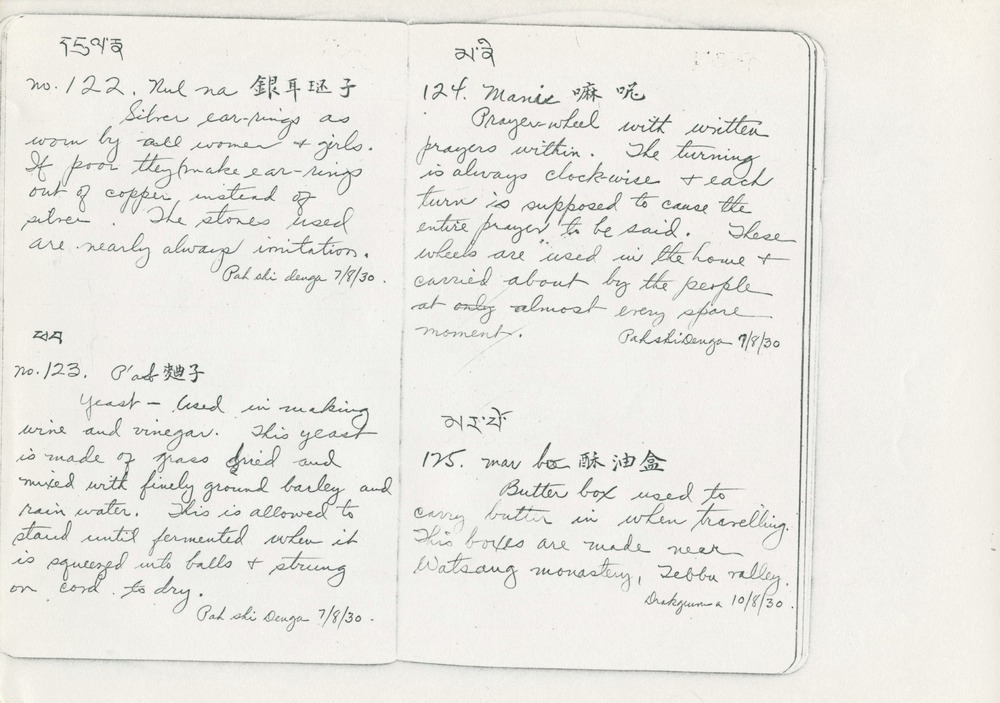 no. 122. Nul na 銀耳环子
Silver ear-rings as
worn by all women + girls.
If poor they make ear-rings
out of copper instead of
silver. The stones used
are nearly always imitation.
Pah shi denga 7/8/30.
no. 123. P'ab 麯子
Yeast - Used in making
wine and vinegar. This yeast
is made of grass dried and
mixed with finely ground barley and
rain water. This is allowed to
stand until fermented when it
is squeezed into balls + strung
on cord to dry.
Pah shi Denga 7/8/30.
མ་ནི
124. Manie 嘛呢
Prayer-wheel with written
prayers within. The turning
is always clockwise + each
turn is supposed to cause the
entire prayer to be said. These
wheels are "used in the home +
carried about by the people
at only almost every spare
moment.
Pah shi Denga 9/8/30
125. mar bo 酥油盒
Butter box used to
carry butter in when travelling.
This boxes are made near
Watsang monastery, Tebbu valley.
Drakguma 10/8/30.